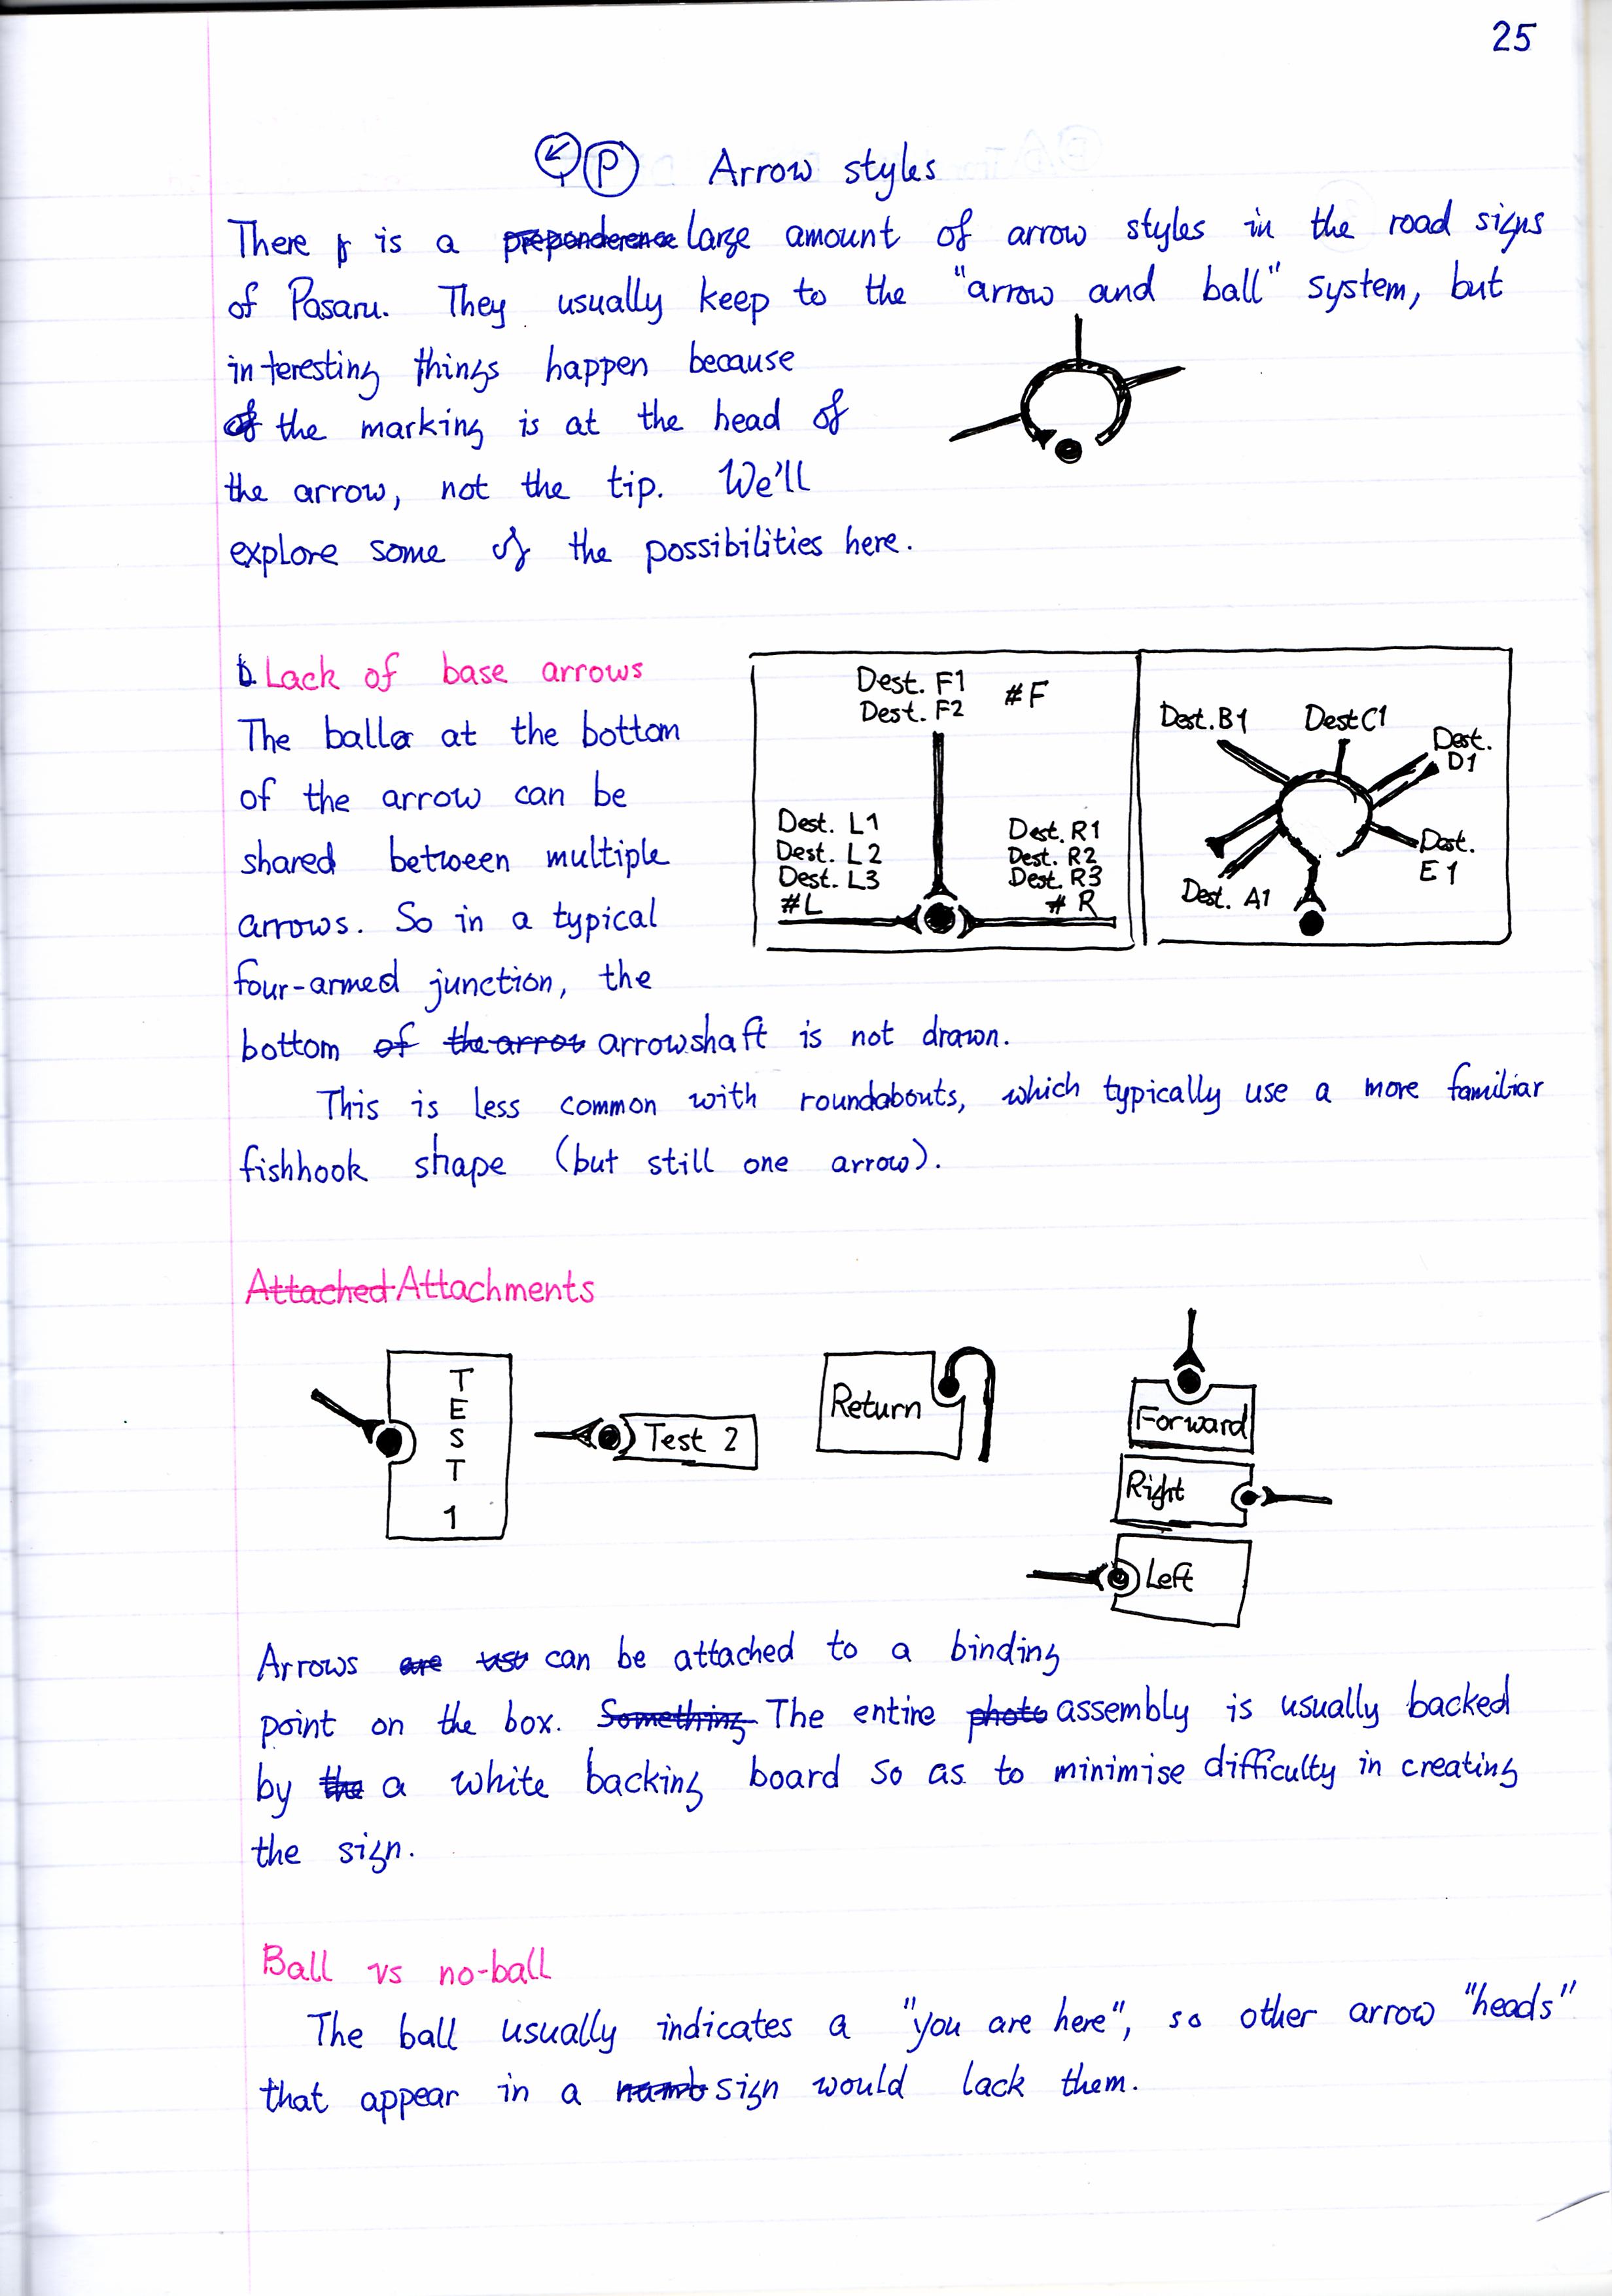 25
P Arrow styles
There is a preponderence large amount of arrow styles in the road signs
of Pasaru. They usually keep to the "arrow and ball" system, but
interesting things happen because
of the marking is at the head of
the arrow, not the tip. We'll
explore some of the possibilities here.
Lack of base arrows
The ball at the bottom
of the arrow can be
shared between multiple
arrows. So in a typical
four-armed junction, the
bottom of the arrow arrowshaft is not drawn.
This is less common with roundabouts, which typically use a more familiar
fishhook shape (but still one arrow).
Dest. F1
Dest. F2
#F
Dest. L1
Dest. L2
Dest. L3
#L
Dest. R1
Dest. R2
Dest. R3
# R
Dest. B1
Dest C1
Dest.
D1
Dest.
E1
Dest. A1
Attached Attachments
T
E
S
T
1
Test 2
Return
Forward
Right
Left
Arrows are usu can be attached to a binding
point on the box. Something The entire photo assembly is usually backed
by the a white backing board so as to minimise difficulty in creating
the sign.
Ball vs no-ball
The ball usually indicates a "you are here", so other arrow "heads"
that appear in a sign would lack them.